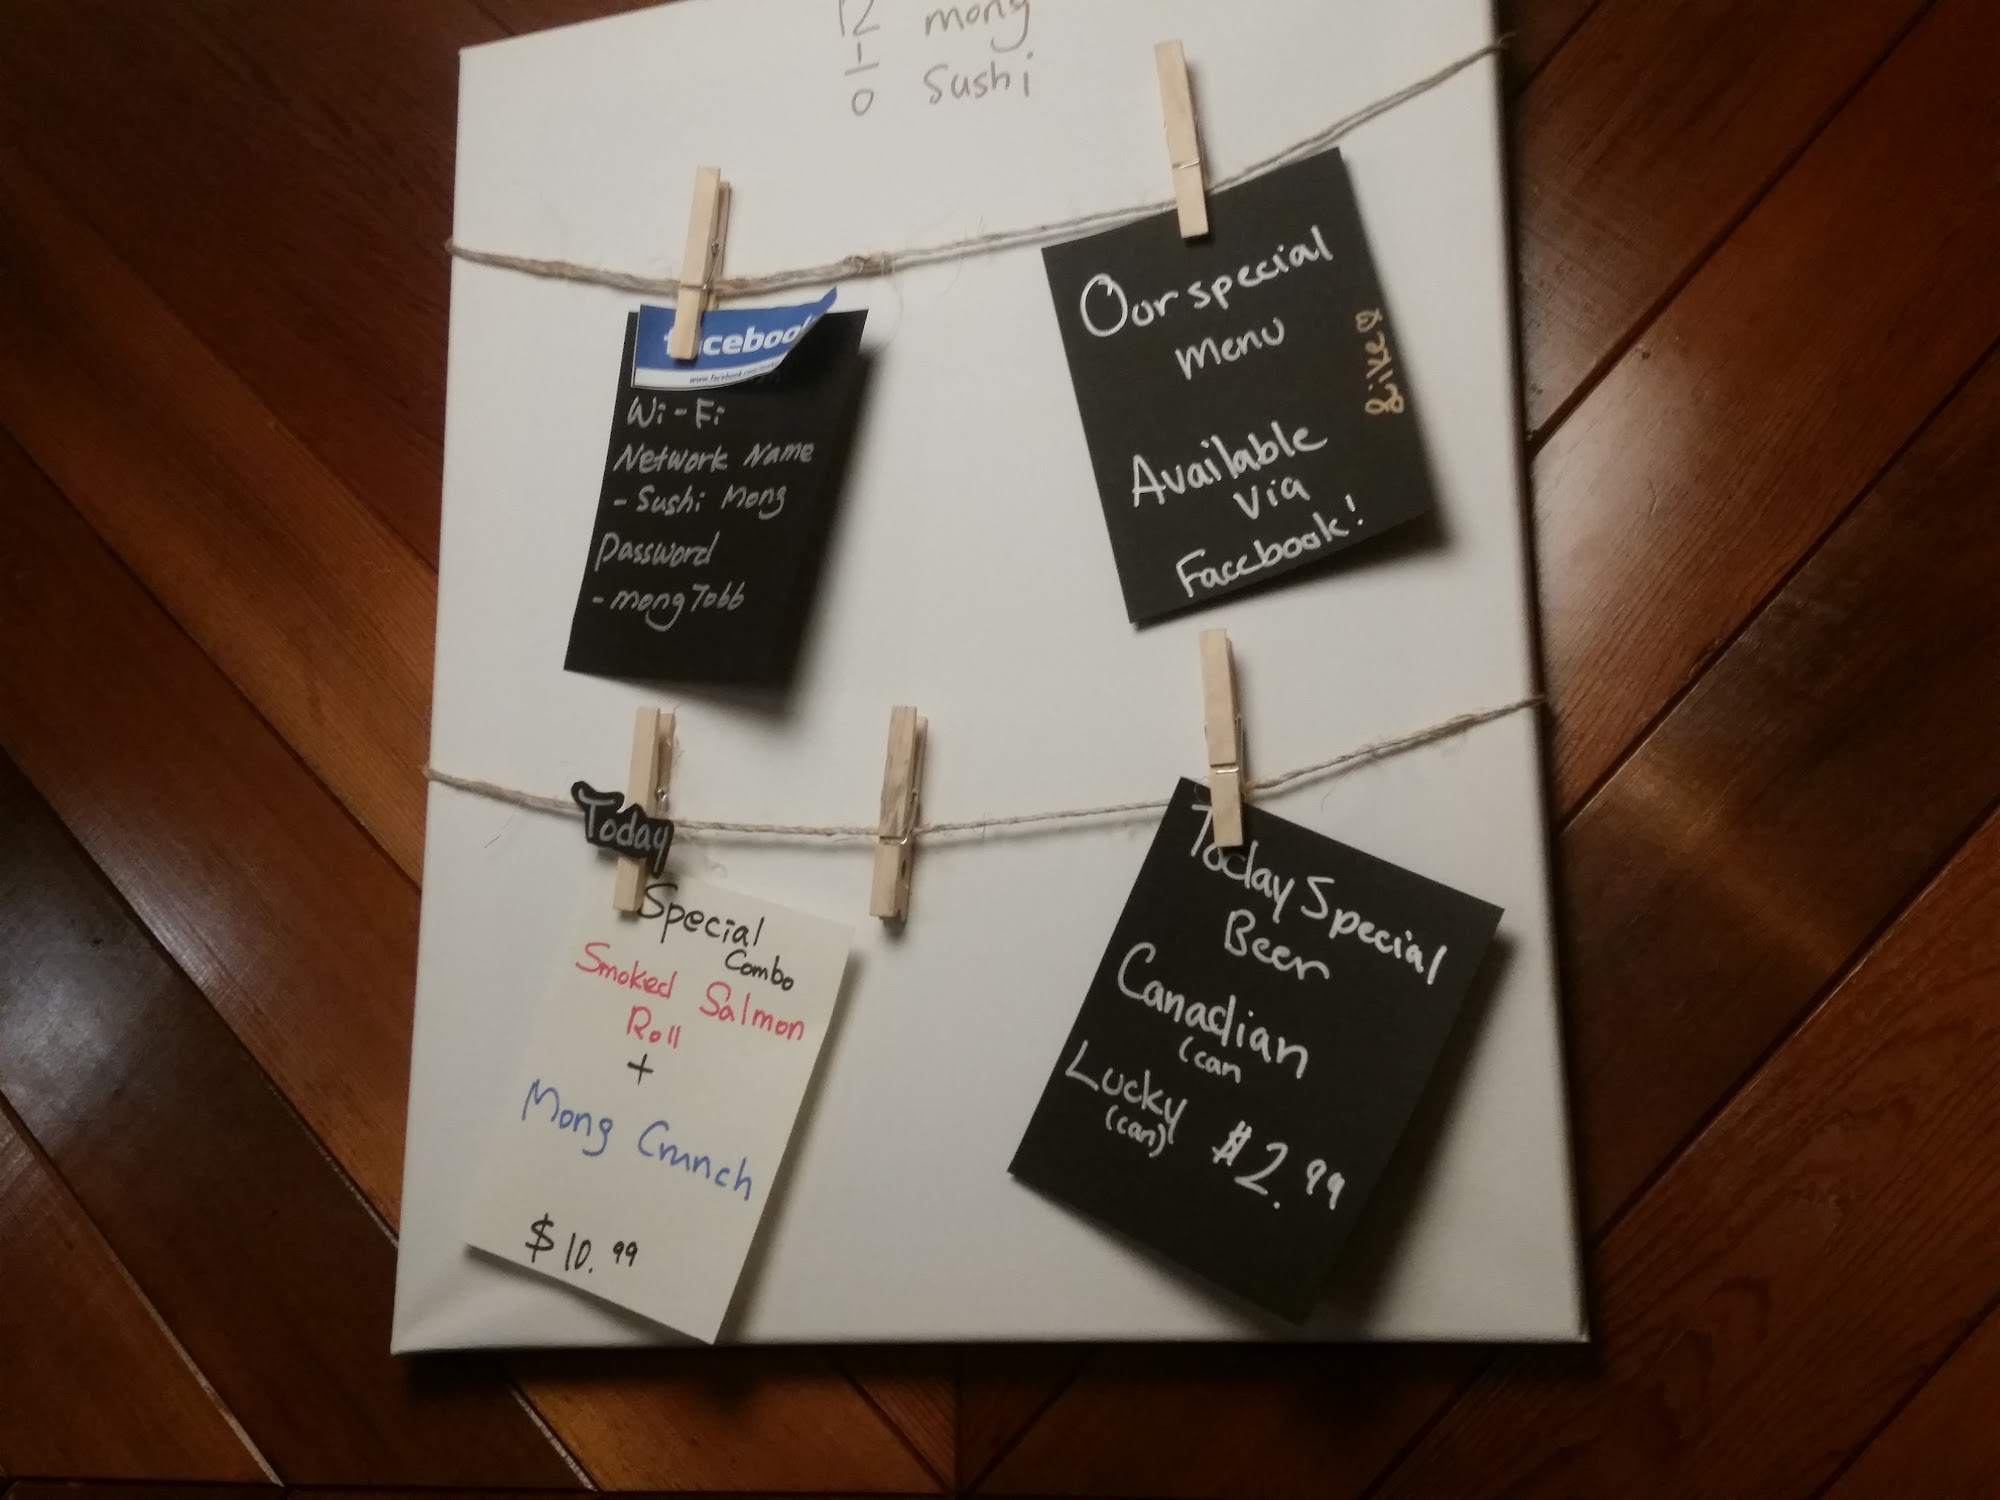 mong
sushi
facebook
Wi-Fi
Network Name
- Sushi Mong
Password
- mong7066
Our special
menu
Available
via
Facebook!
Like
Today
Special
Combo
Smoked Salmon
Roll
+
Mong Crunch
$10.99
Today Special
Beer
Canadian
(can
Lucky $2.99
(can)